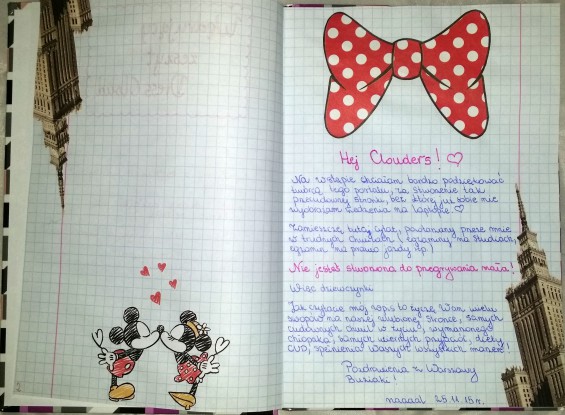 Hej Clouders! ♡
Na wstępie chciałam bardzo podziękować
twórcą tego portalu, za stworzenie tak
strony, bez której już sobie nic
wyobrażam siedzenia na laptopie ♡
tutaj cytat, powtarzany przeze mnie
w trudnych chwilach (egzaminy na studiach,
egzamin na prawo jazdy itp.)
Nie jesteś stworzona do przegrywania mała!
Więc dziewczynki
Jak czytacie mój wpis to życzę Wam wielu
wpisów na naszej ulubionej stronce, samych
cudownych chwil w życiu, wymarzonego
chłopaka, samych wiernych przyjaciół, diety
CUD, spełnienia Waszych wszystkich marzeń!
Pozdrowienia z Warszawy
Buziaki!
25.11.15r.